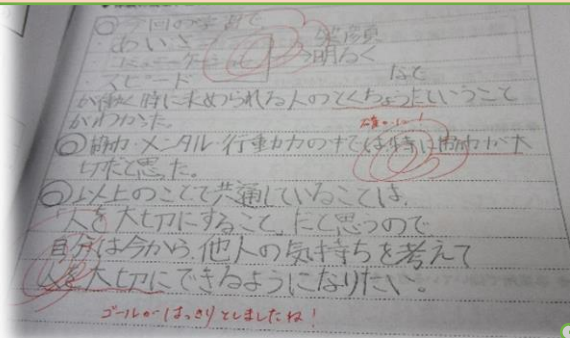 今回の学習で
・あいさつ ・笑顔
・コミュニケーション ・明るく
・スピード など
が働く時に求められる人のとくちょうだということ
がわかった。
確かに!
協力・メンタル・行動力の中では特に協力が大
切だと思った。
以上のことで共通していることは、
「人を大切にすること」だと思うので
自分は今から、他人の気持ちを考えて
人を大切にできるようになりたい。
ゴールがはっきりとしましたね!